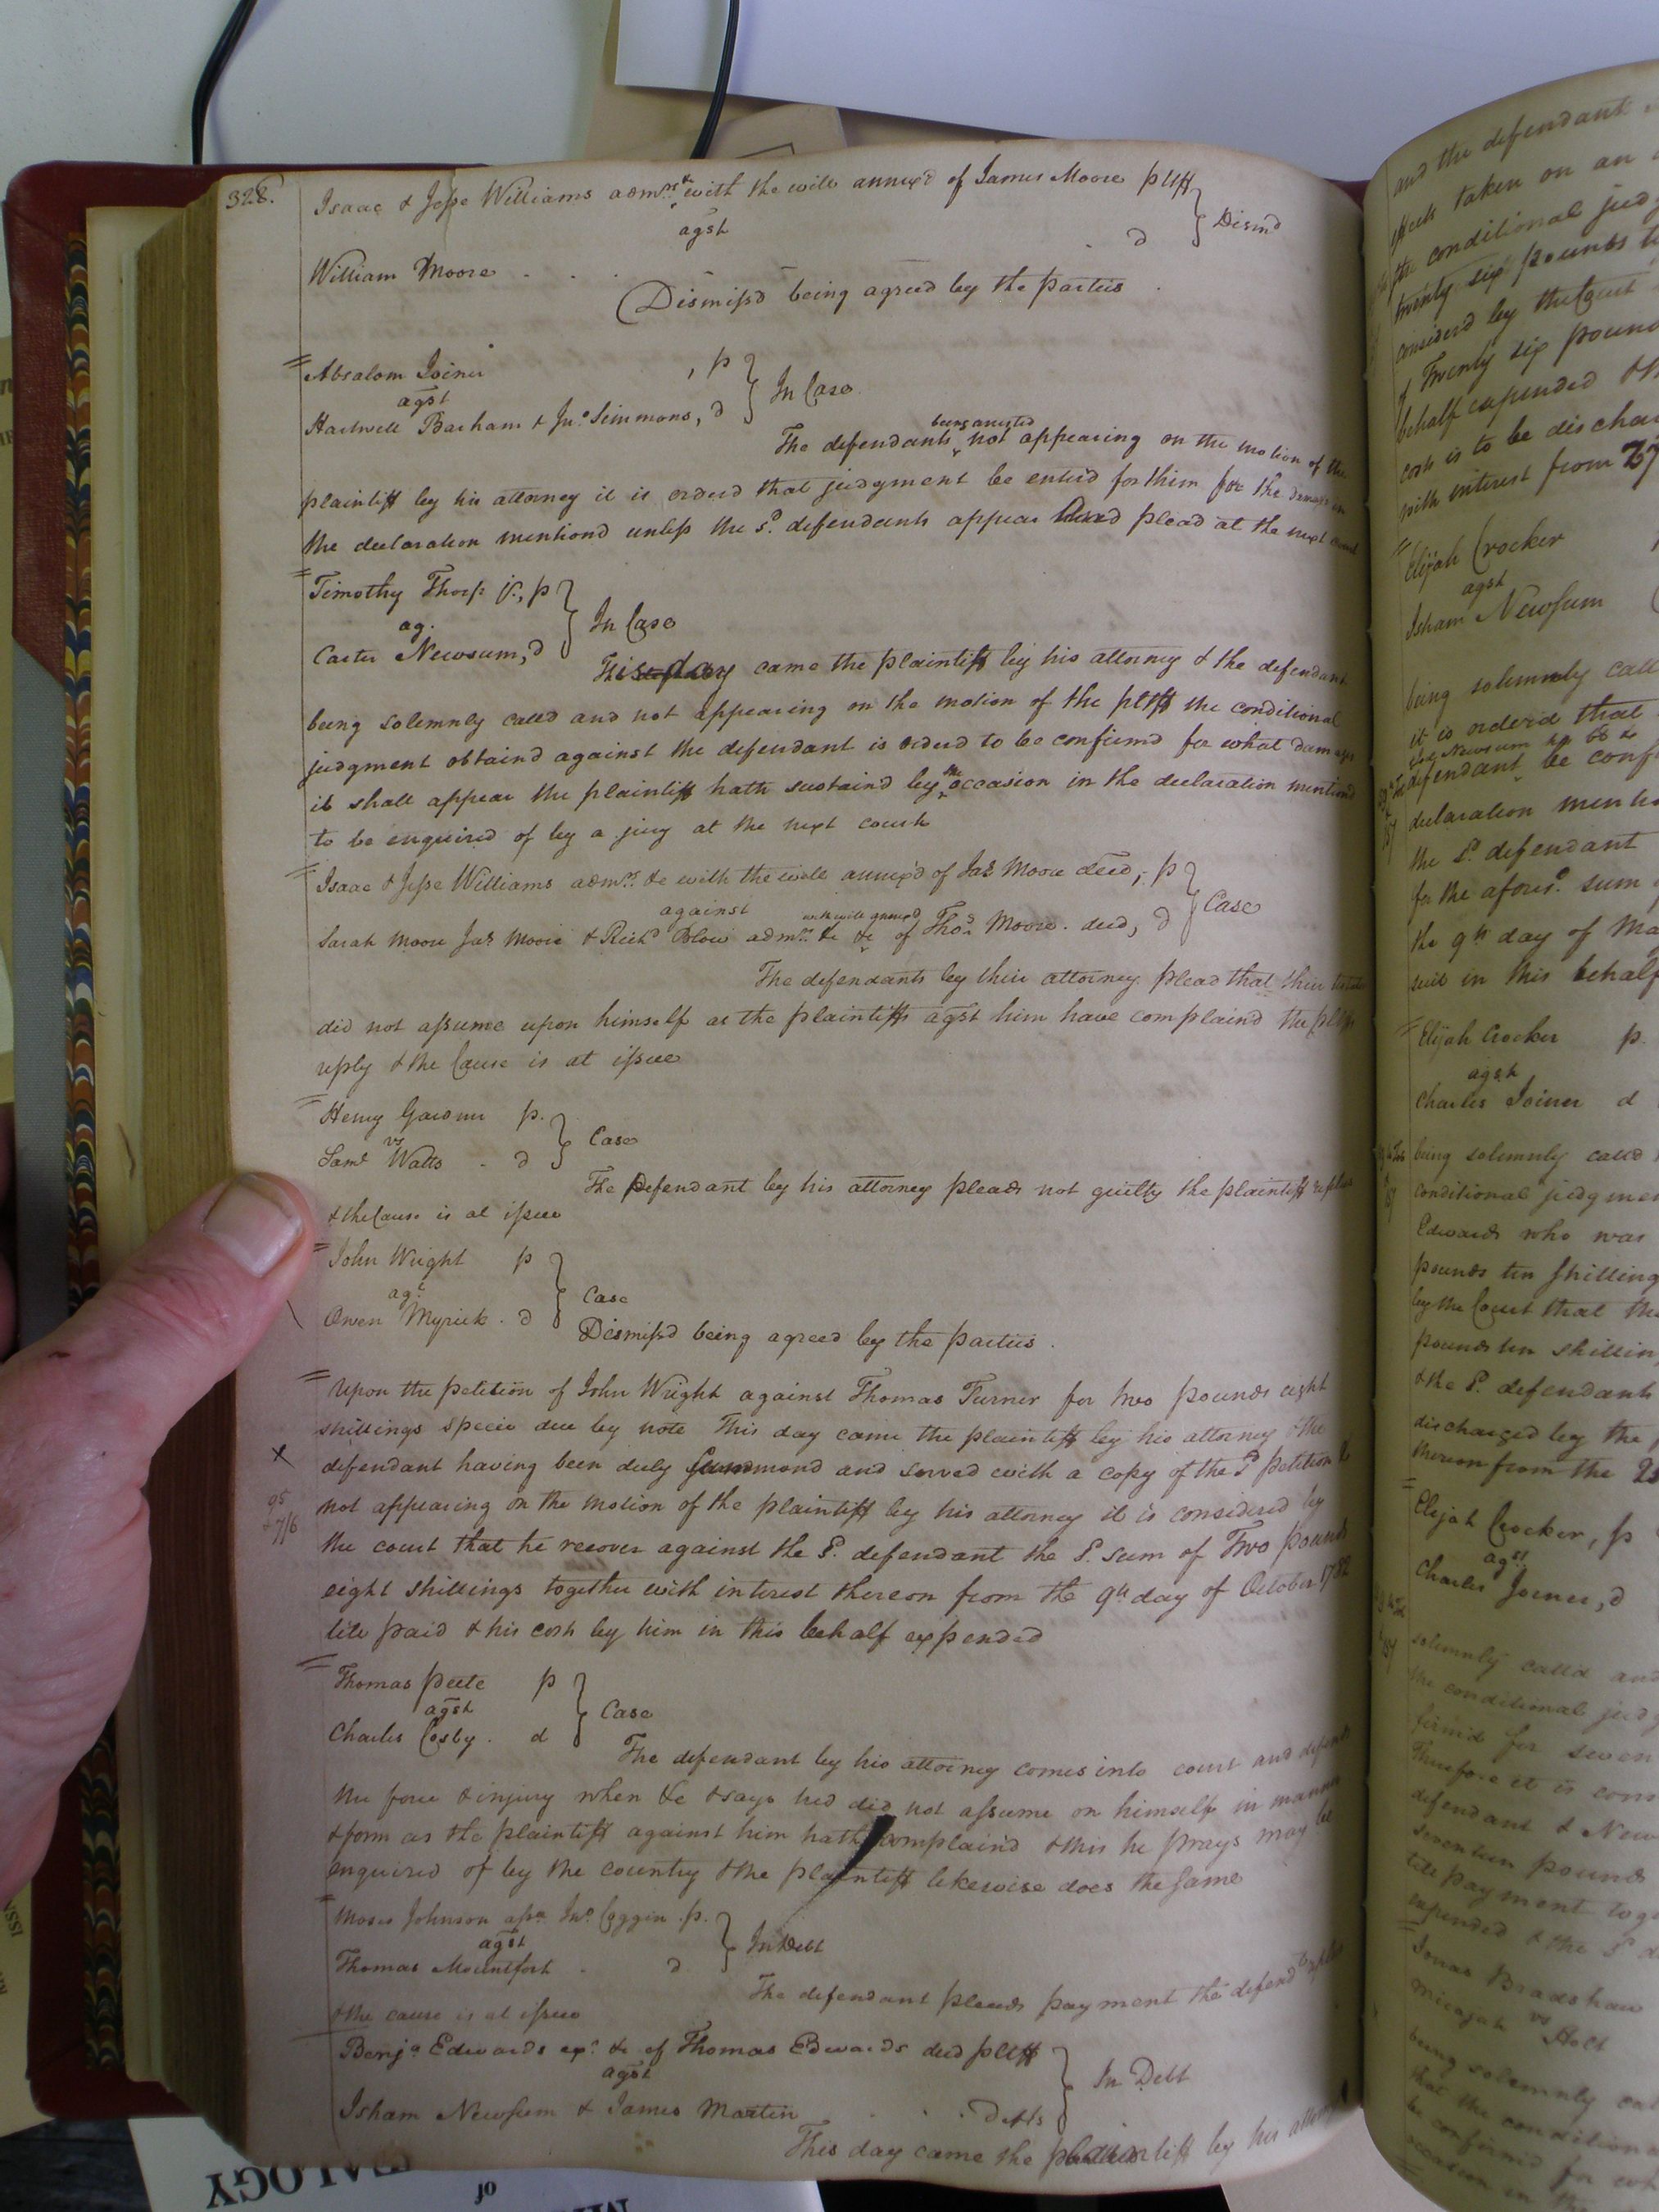 328.
Isaac & Jesse Williams admrs. with the will annex'd of James Moore pltff
agst
Dismd
William Moore d
Dismiss'd being agreed by the parties
Absalom Joiner, p
agst
In Case
Hartwell Barham & Jno. Simmons, d
being arrested
The defendants not appearing on the motion of the
plaintiff by his attorney it is orderd that judgment be enterd for them for the damages in
the declaration mentiond unless the sd. defendants appear and plead at the next court
Timothy Thorp jr., p
ag.
In Case
Carter Newsum, d
This day came the plaintiff by his attorney & the defendant
being solemnly called and not appearing on the motion of the pltff the conditional
judgment obtaind against the defendant is orderd to be confirmd for what damages
it shall appear the plaintiff hath sustaind by the occasion in the declaration mentiond
to be enquired of by a jury at the next court
Isaac & Jesse Williams admrs. &c with the will annex'd of Jas. Moore decd, p
against
Case
with will annexd
Sarah Moore Jas. Moore & Richd Blow admrs. &c &c of Thos. Moore decd, d
The defendants by their attorney plead that their
did not assume upon himself as the plaintiffs agst him have complaind the pltffs
reply & the Cause is at issue
Henry Gardner p.
vs
Case
Saml Watts d
The Defendant by his attorney pleads not guilty the plaintiff replies
& the Cause is at issue
John Wright p
agt
Case
Owen Myrick d
Dismiss'd being agreed by the parties.
Upon the petition of John Wright against Thomas Turner for two pounds eight
shillings specie due by note This day came the plaintiff by his attorney & the
x
defendant having been duly summond and served with a copy of the sd petition &
95
& 7/6
not appearing on the motion of the plaintiff by his attorney it is considered by
the court that he recover against the sd. defendant the sd. sum of Two pounds
eight shillings together with interest thereon from the 9th day of October 1782
till paid & his costs by him in this behalf expended
Thomas Peete p
agst
Case
Charles Cosby d
The defendant by his attorney comes into court and defends
the force & injury when &c & says hed did not assume on himself in manner
& form as the plaintiff against him hath complaind & this he prays may be
enquired of by the country & the plaintiff likewise does the same
Moses Johnson assee. Jno. Coggin p.
agst
In Debt
Thomas Mountfort d
The defendant pleads payment the defendt replies
& the cause is at issue
Benja Edwards exr. &c of Thomas Edwards decd pltff
agst
In Debt
Isham Newsum & James Martin defts
This day came the plaintiff by his attorney
and the defendant
taken on an
the conditional judg
twenty six pounds
considerd by the Court
of Twenty six pound
behalf expended & th
costs is to be dischar
with interest from 27
Elijah Crocker
agst
Isham Newsum
being solemnly call
it is orderd that
defendant be conf
declaration mentio
the sd. defendant
for the aforesd. sum
the 9th day of Ma
suit in this behalf
Elijah Crocker p.
agst
Charles Joiner d
being solemnly calld
conditional judgmen
Edwards who was
pounds ten shilling
by the Court that the
pounds ten shillin
& the sd. defendants
discharged by the
thereon from the 25
Elijah Crocker, p
agst
Charles Joiner, d
solemnly calld and
the conditional judg
firmd for seven
Therefore it is cons
defendant & New
seventeen pounds
till payment toge
expended & the sd d
Jonas Bradshaw
vs
Micajah Holt
being solemnly cal
that the conditiona
be confirmd for wh
occasion in th